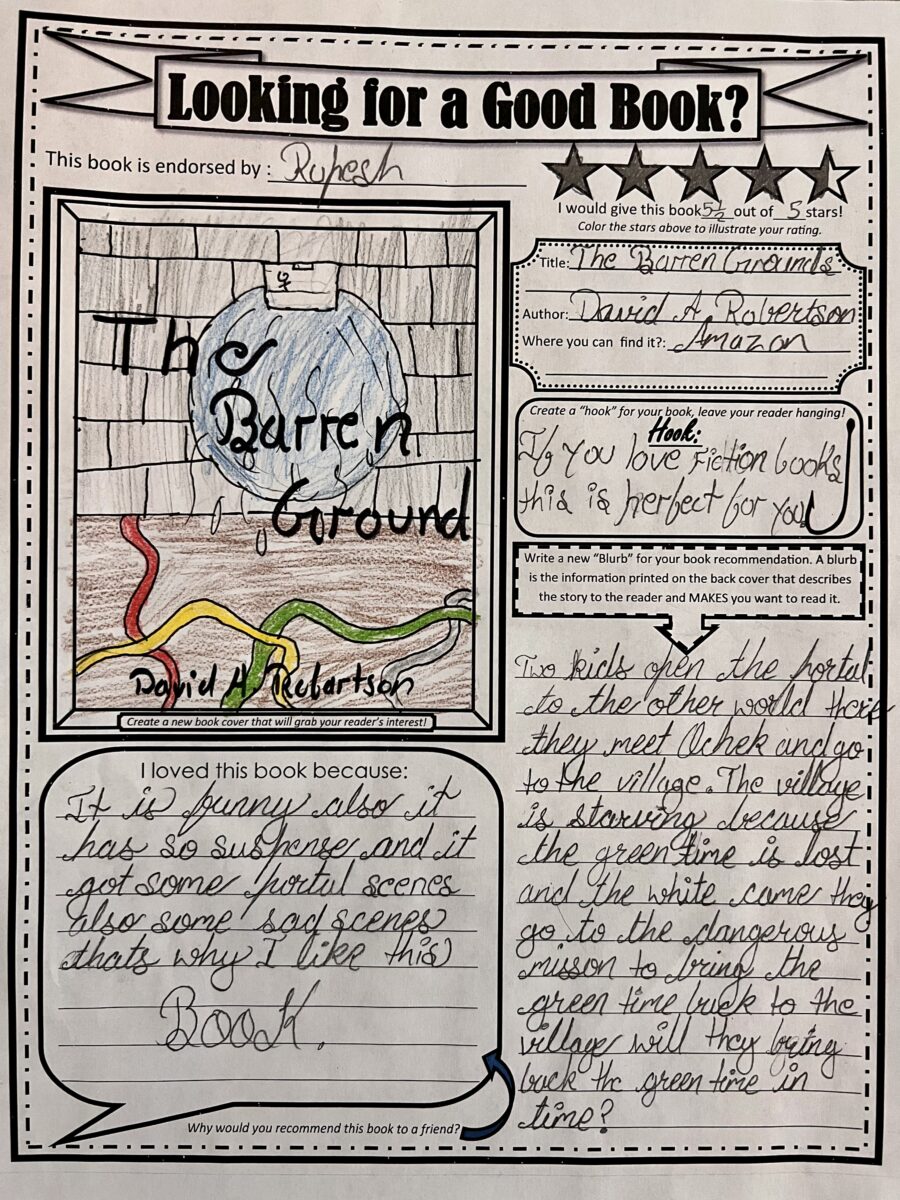 Looking for a Good Book?
This book is endorsed by : Rupesh
I would give this book 5½ out of 5 stars!
Color the stars above to illustrate your rating.
Title: The Barren Grounds
Author: David A. Robertson
Where you can find it?: Amazon
The
Barren
Ground
David A. Robertson
Create a new book cover that will grab your reader's interest!
Create a "hook" for your book, leave your reader hanging!
Hook:
If you love Fiction books
this is perfect for you
Write a new "Blurb" for your book recommendation. A blurb
is the information printed on the back cover that describes
the story to the reader and MAKES you want to read it.
Two kids open the portul
to the other world there
they meet Ochek and go
to the village. The village
is starving because
the green time is lost
and the white came they
go to the dangerous
misson to bring the
green time back to the
village will they bring
back the green time in
time?
I loved this book because:
It is funny also it
has so suspense and it
got some portul scenes
also some sad scenes
thats why I like this
BOOK.
Why would you recommend this book to a friend?